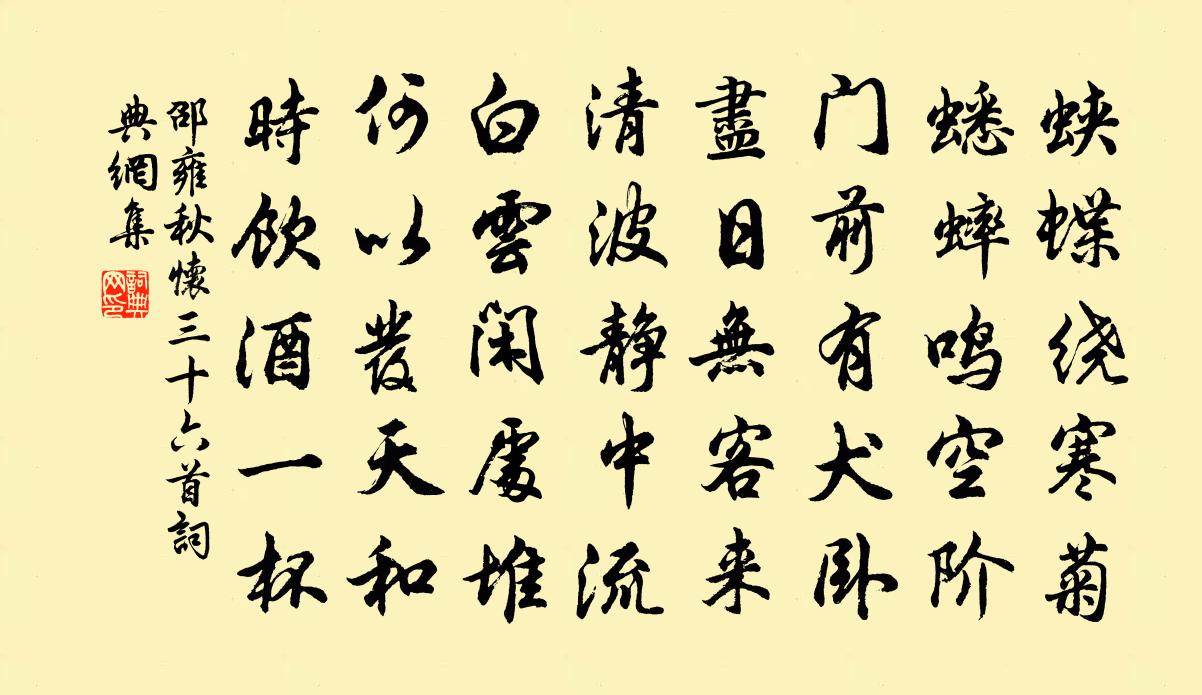 蛱蝶绕寒菊
蟋蟀鸣空阶
门前有犬卧
盡日無客来
清波静中流
白雲閑處堆
何以發天和
時飲酒一杯
邵雍秋懷三十六首詞
典網集
詞典
网印